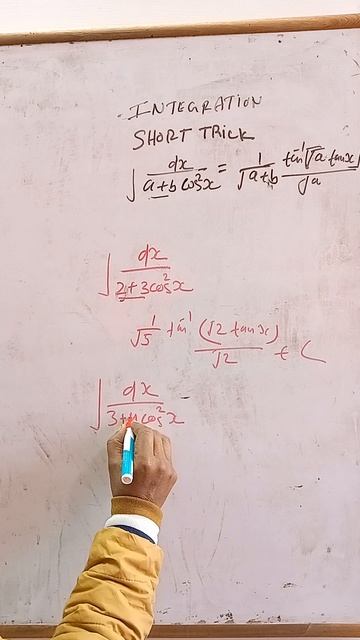 INTEGRATION
SHORT TRICK
∫ dx / (a + b cos²x) = 1/√(a+b) tan⁻¹(√a tanx) / √a
∫ dx / (2 + 3cos²x)
1/√5 tan⁻¹ (√2 tanx) / √2 + C
∫ dx / (3 + 4cos²x)